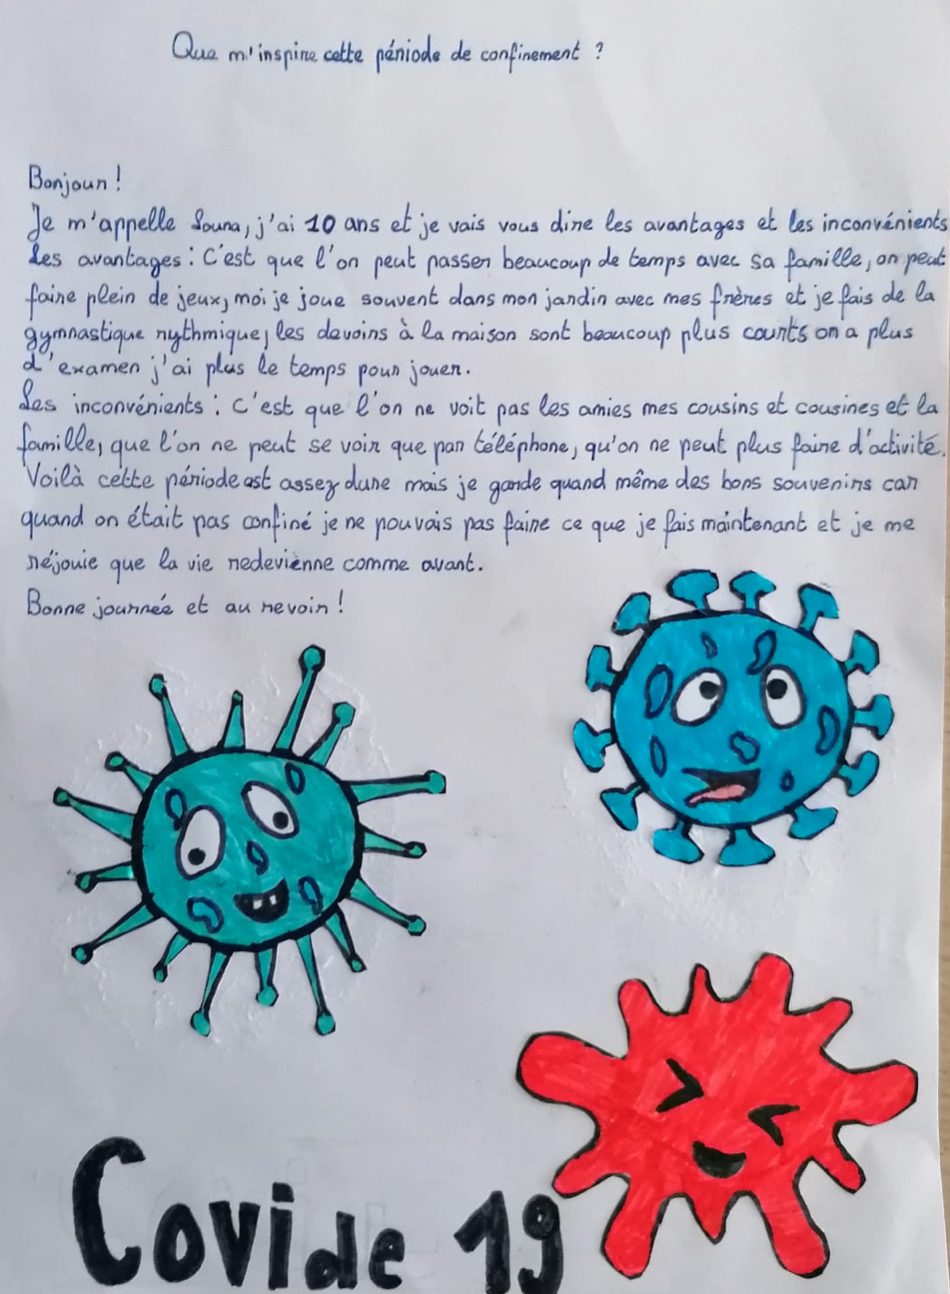 Que m'inspire cette période de confinement ?
Bonjour !
Je m'appelle Louna, j'ai 10 ans et je vais vous dire les avantages et les inconvénients
Les avantages : C'est que l'on peut passer beaucoup de temps avec sa famille, on peut
faire plein de jeux, moi je joue souvent dans mon jardin avec mes frères et je fais de la
gymnastique rythmique, les devoirs à la maison sont beaucoup plus courts on a plus
d'examen j'ai plus le temps pour jouer.
Les inconvénients : C'est que l'on ne voit pas les amies mes cousins et cousines et la
famille, que l'on ne peut se voir que par téléphone, qu'on ne peut plus faire d'activité.
Voilà cette période est assez dure mais je garde quand même des bons souvenirs car
quand on était pas confiné je ne pouvais pas faire ce que je fais maintenant et je me
réjouie que la vie redevienne comme avant.
Bonne journée et au revoir !
Covide 19